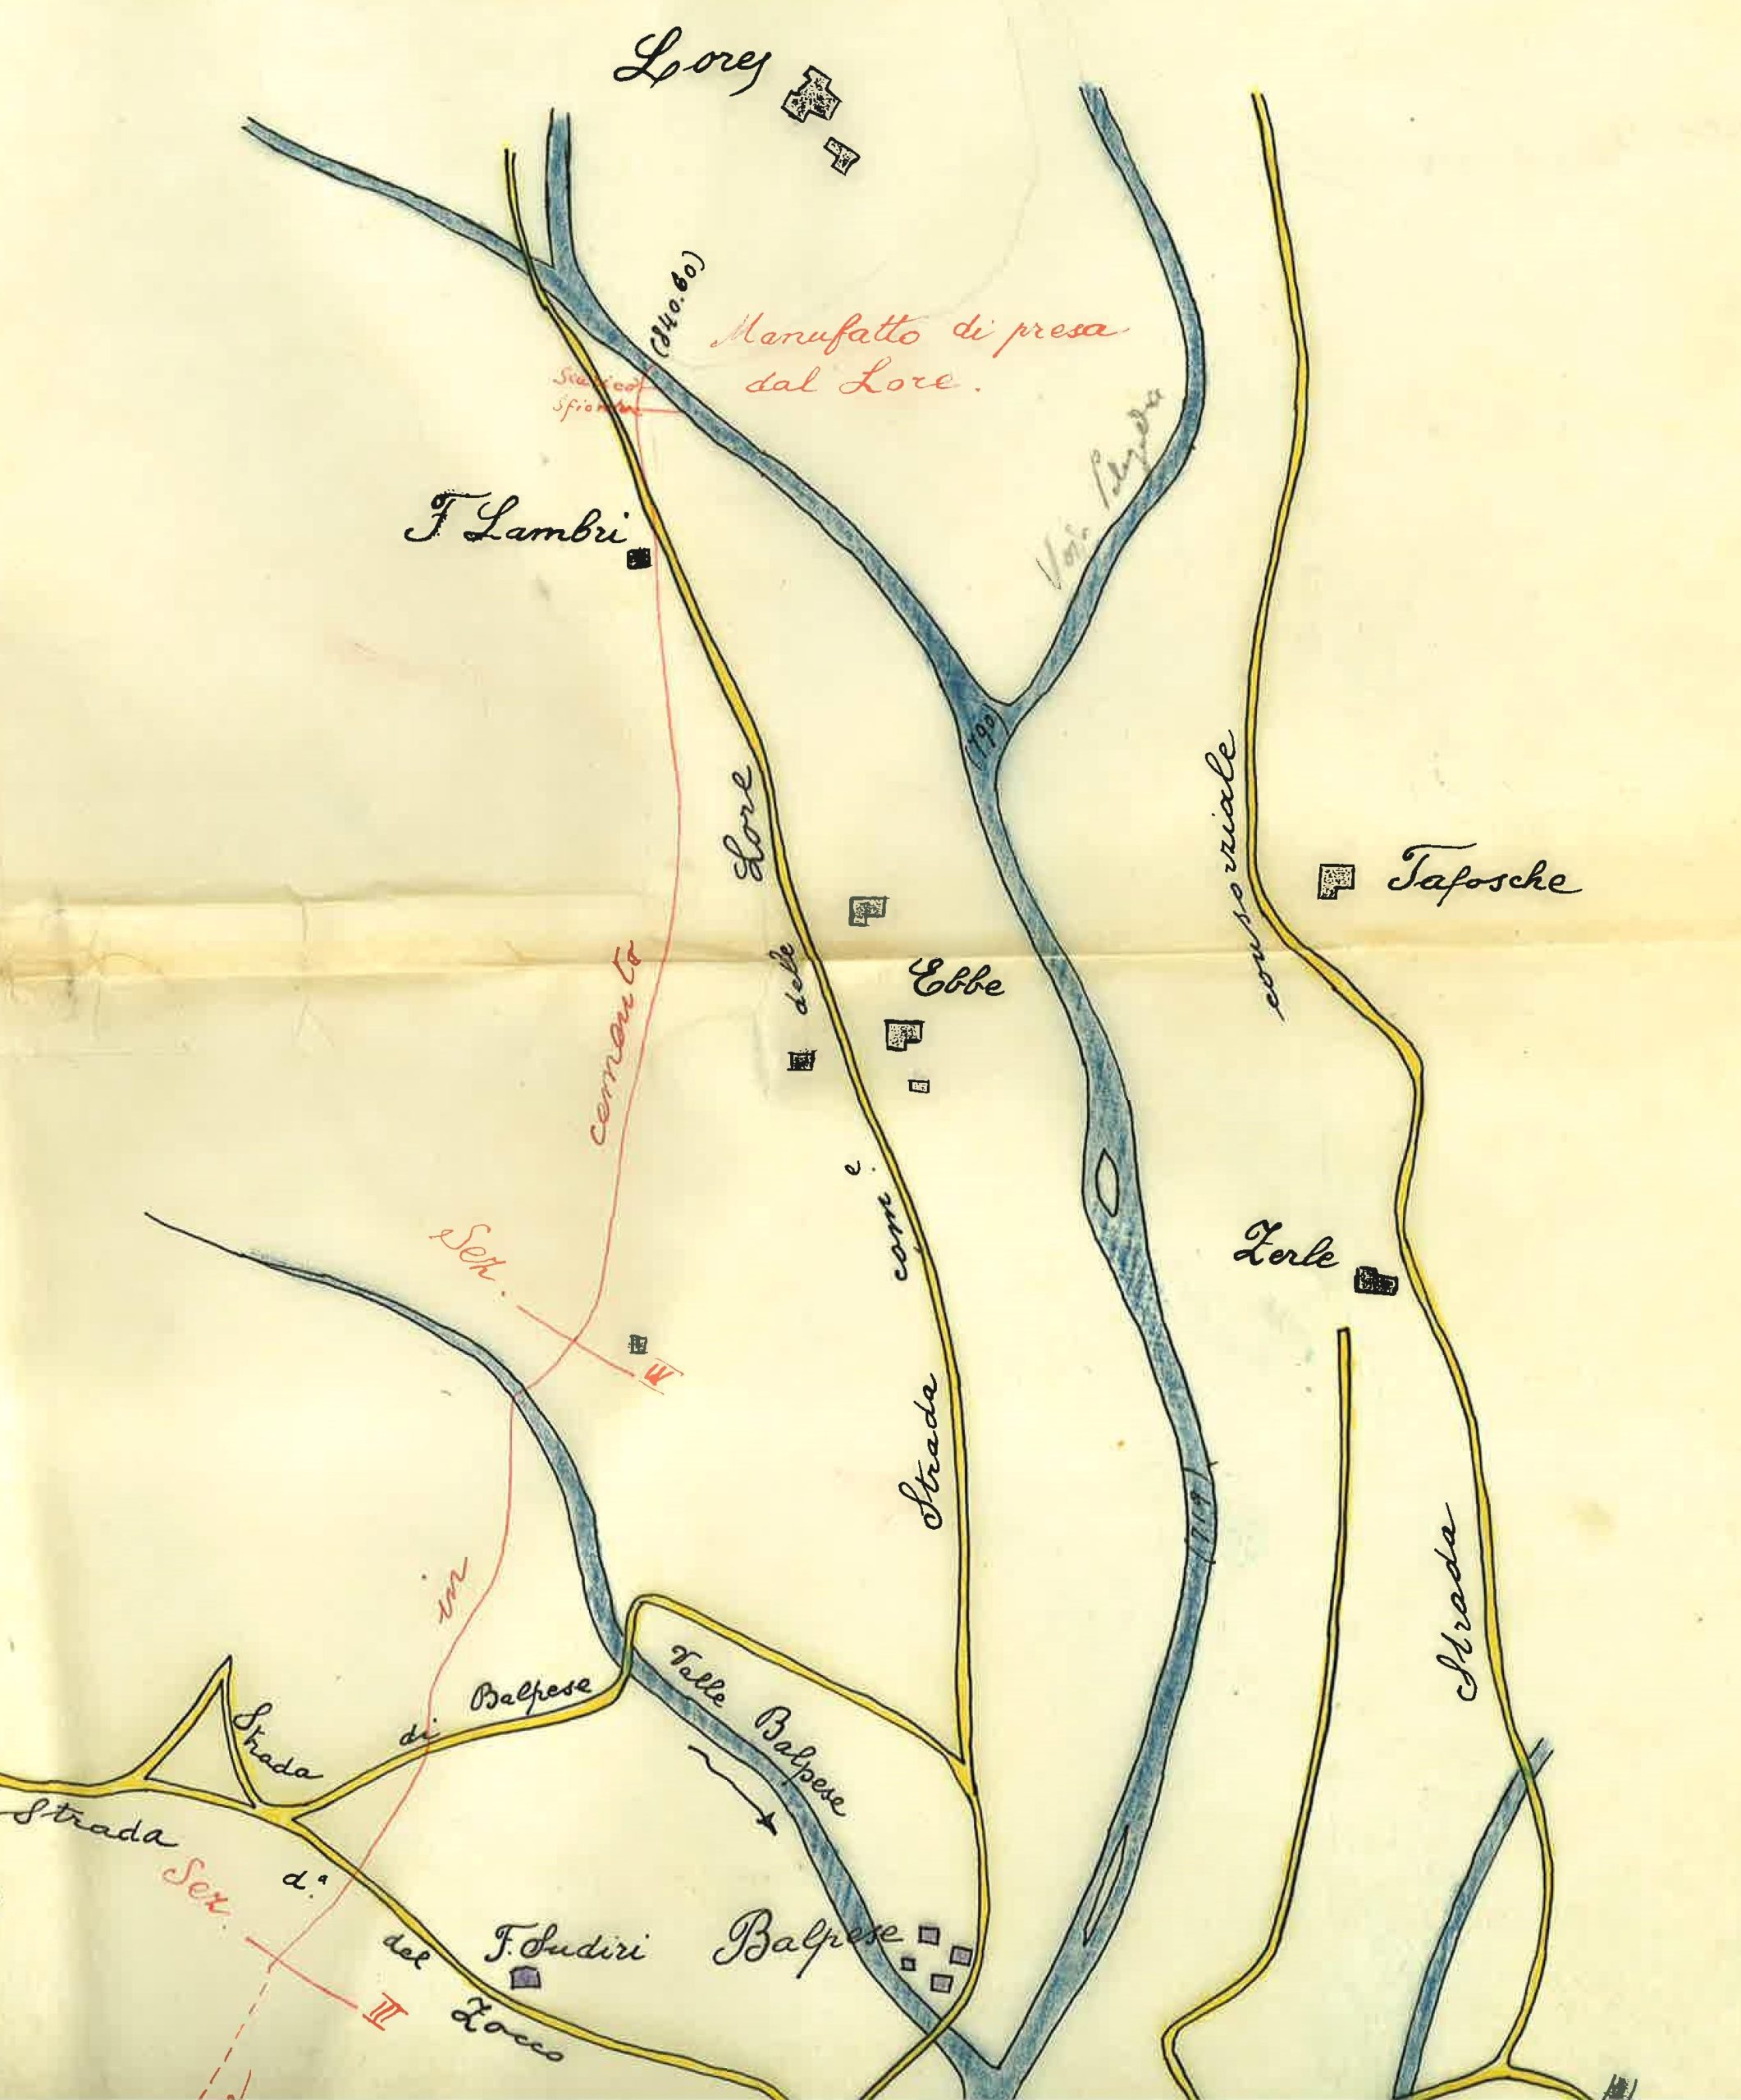 Lores
(840.60)
Manufatto di presa
dal Lore.
Scarico
Sfioratore
F Lambri
(790)
Lore
delle
com.e
Strada
consorziale
Strada
Tafosche
Ebbe
cemento
in
Zerle
Sez.
719
Valle Balpese
Strada di Balpese
Strada d.a del Zocco
Sez.
III
F. Sudiri
Balpese